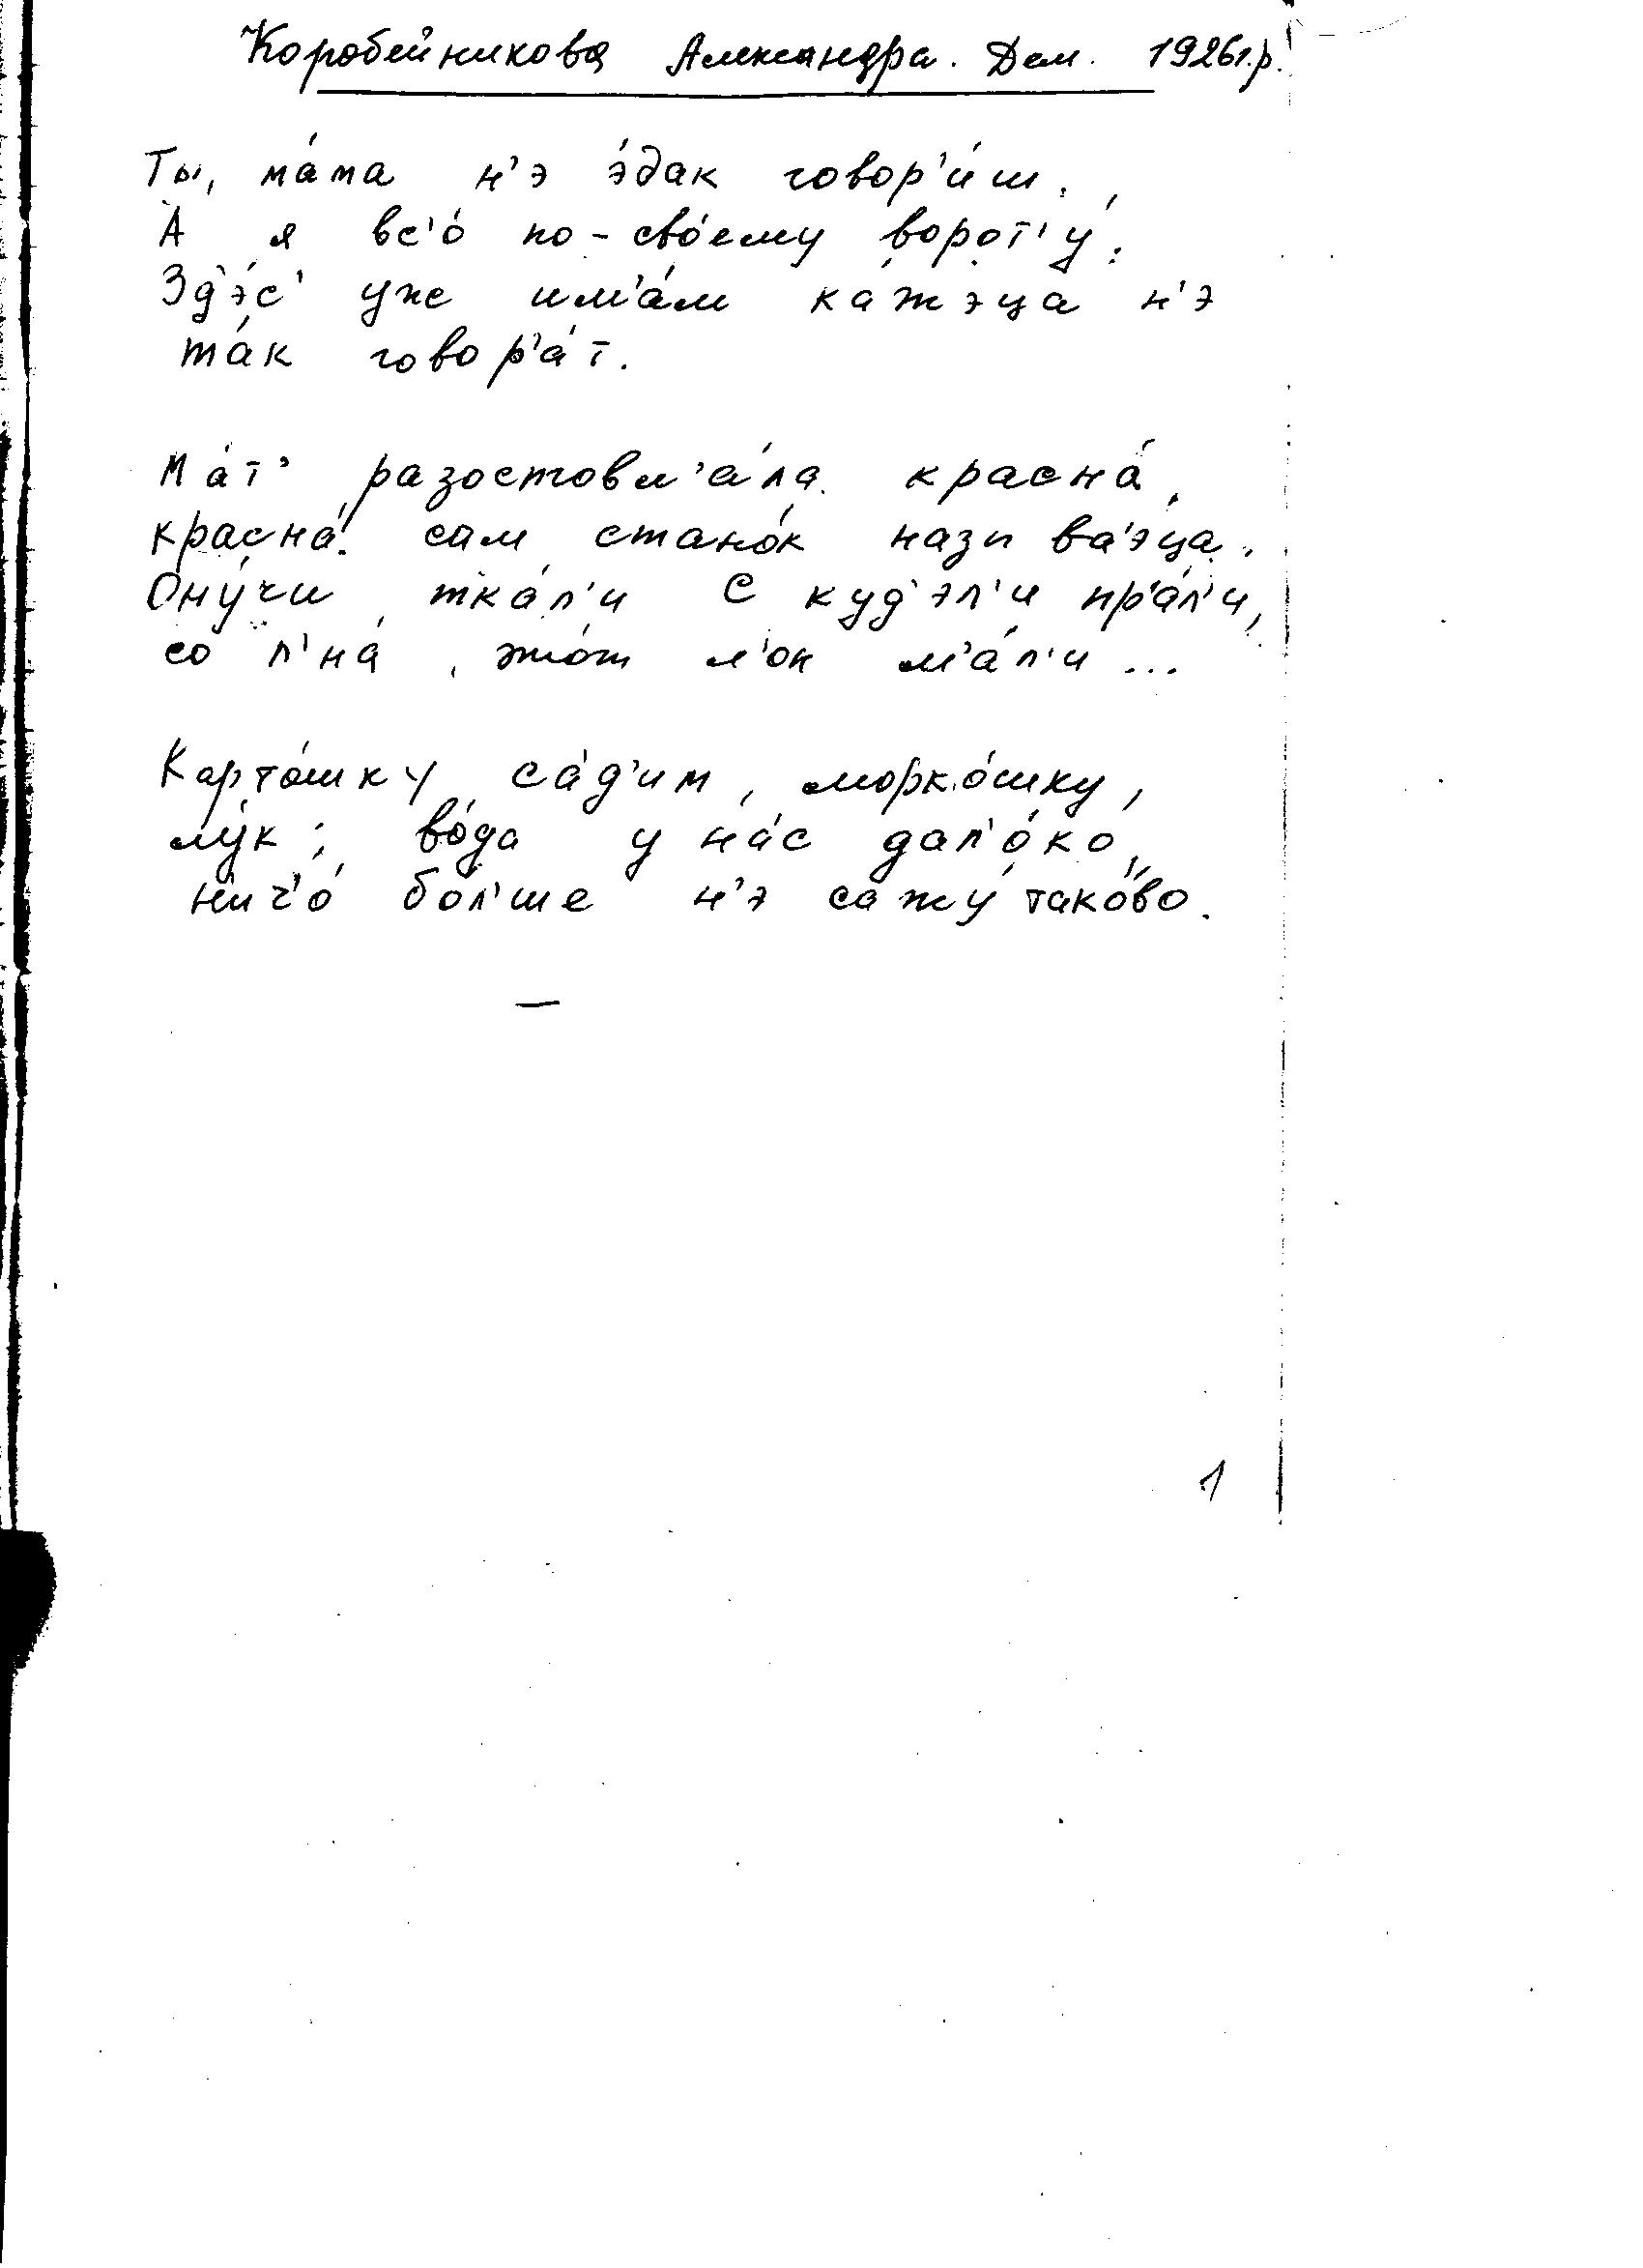 Коробейникова Александра. Дем. 1926 г.р.
Ты, ма́ма н'э э́дак говор'и́ш.
А я вс'о́ по-сво́ему ворот'у́.
Зд'э́с' уже им'а́м ка́жэца н'э
та́к говор'а́т.
Ма́т' разостовл'а́ла красна́,
красна́ сам стано́к называ́'эца.
Ону́чи тка́л'и С куд'эл'и пр'а́л'и,
со л'на́, э́тот л'он м'а́л'и ...
Карто́шку са́д'им, морко́шку,
лу́к; во́да у на́с дал'о́ко,
нич'о́ бо́л'ше н'э сажу́ тако́во.
1